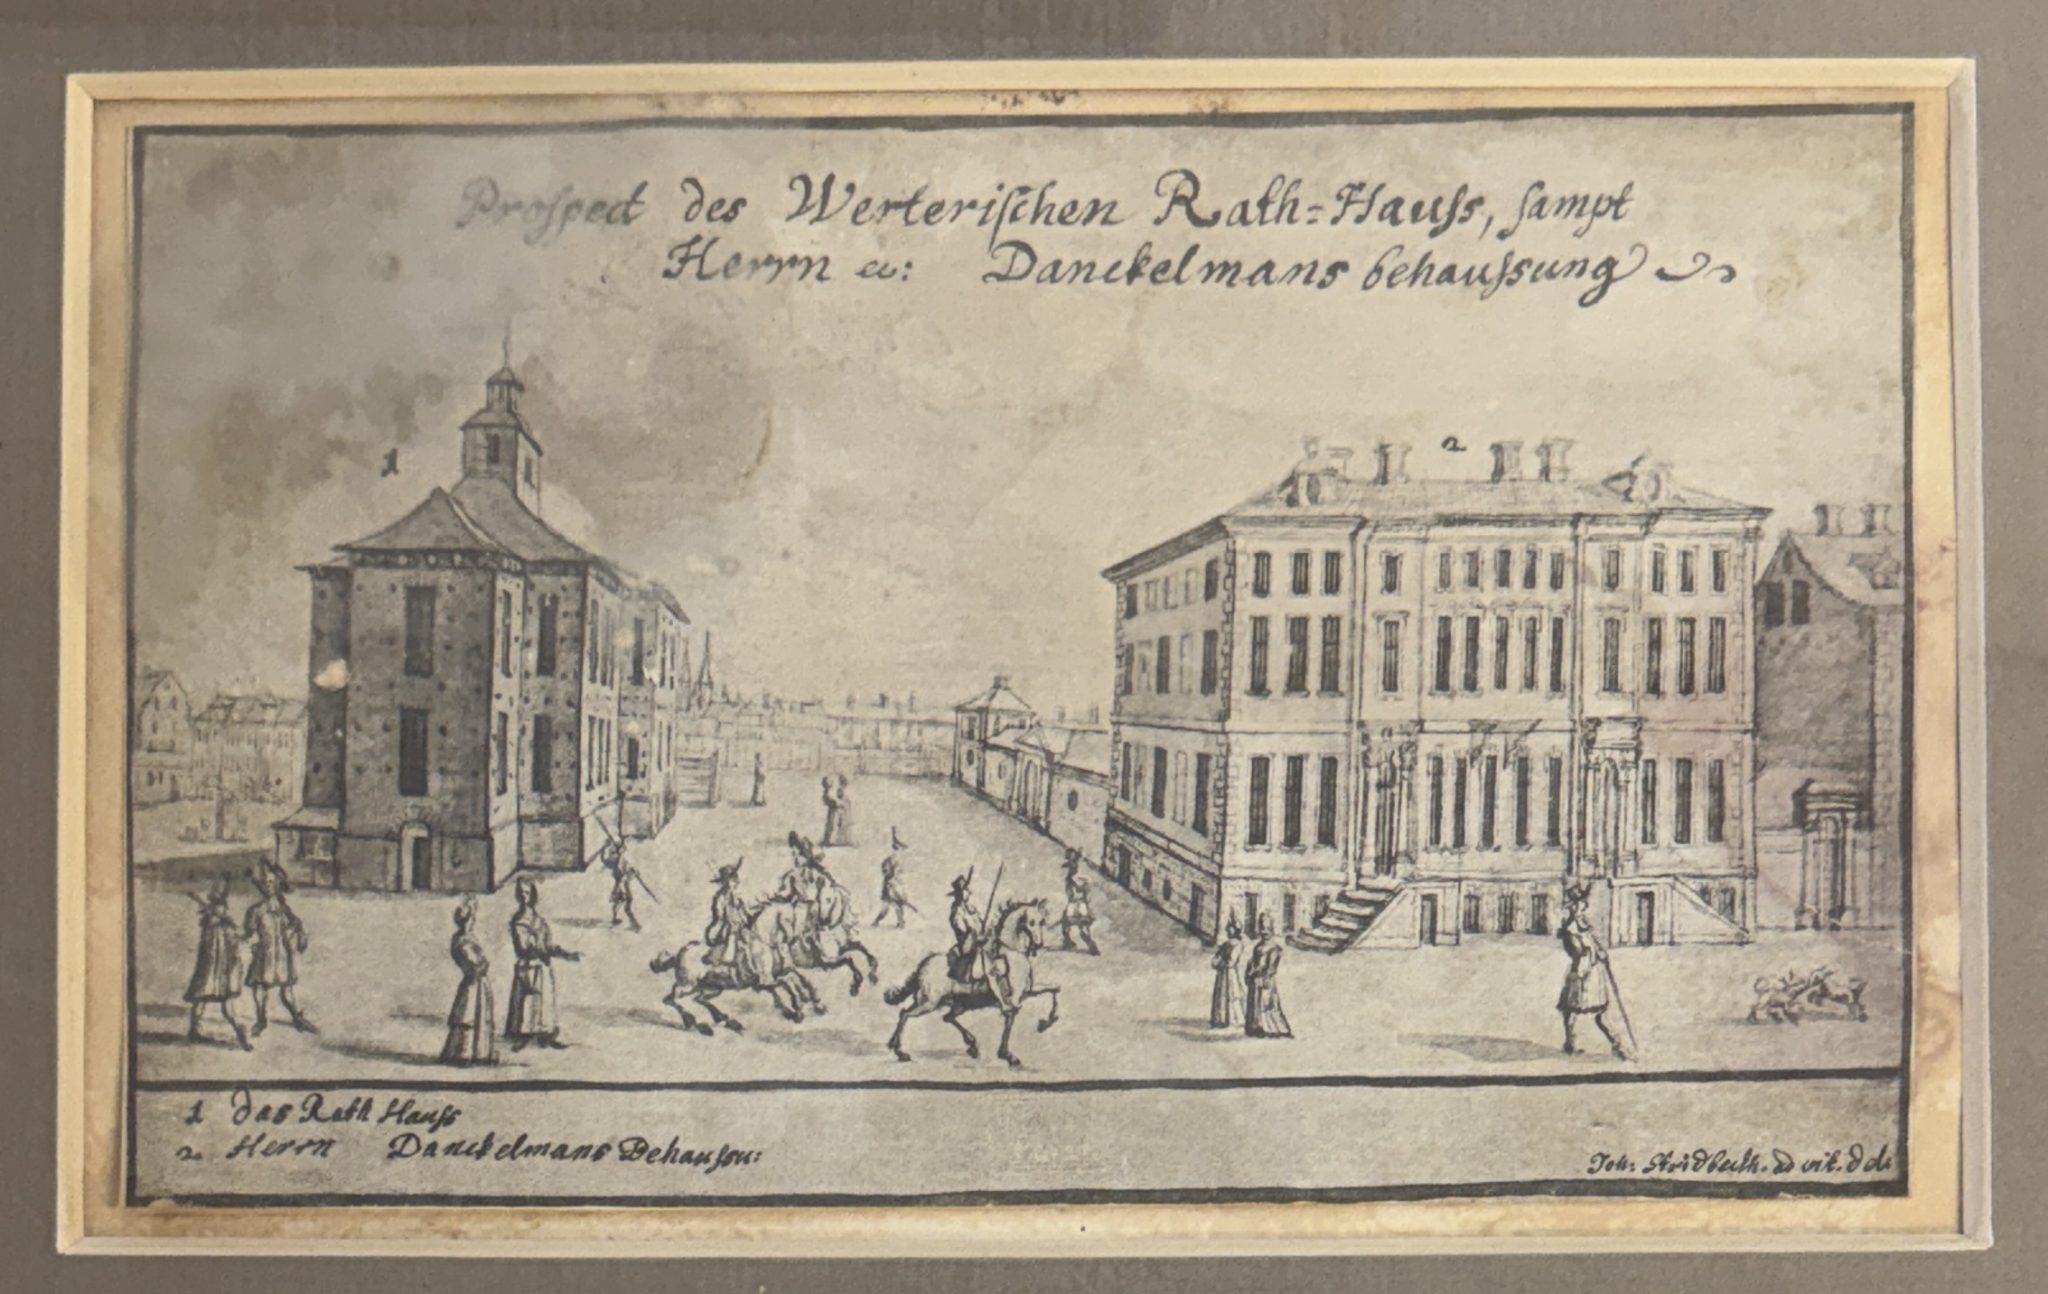 Prospect des Werterischen Rath=Hauss, sampt
Herrn &: Danckelmans behaussung
1
2
1 das Rath Hauss
2 Herrn Danckelmans Behaussu:
Joh: Stridbeck.